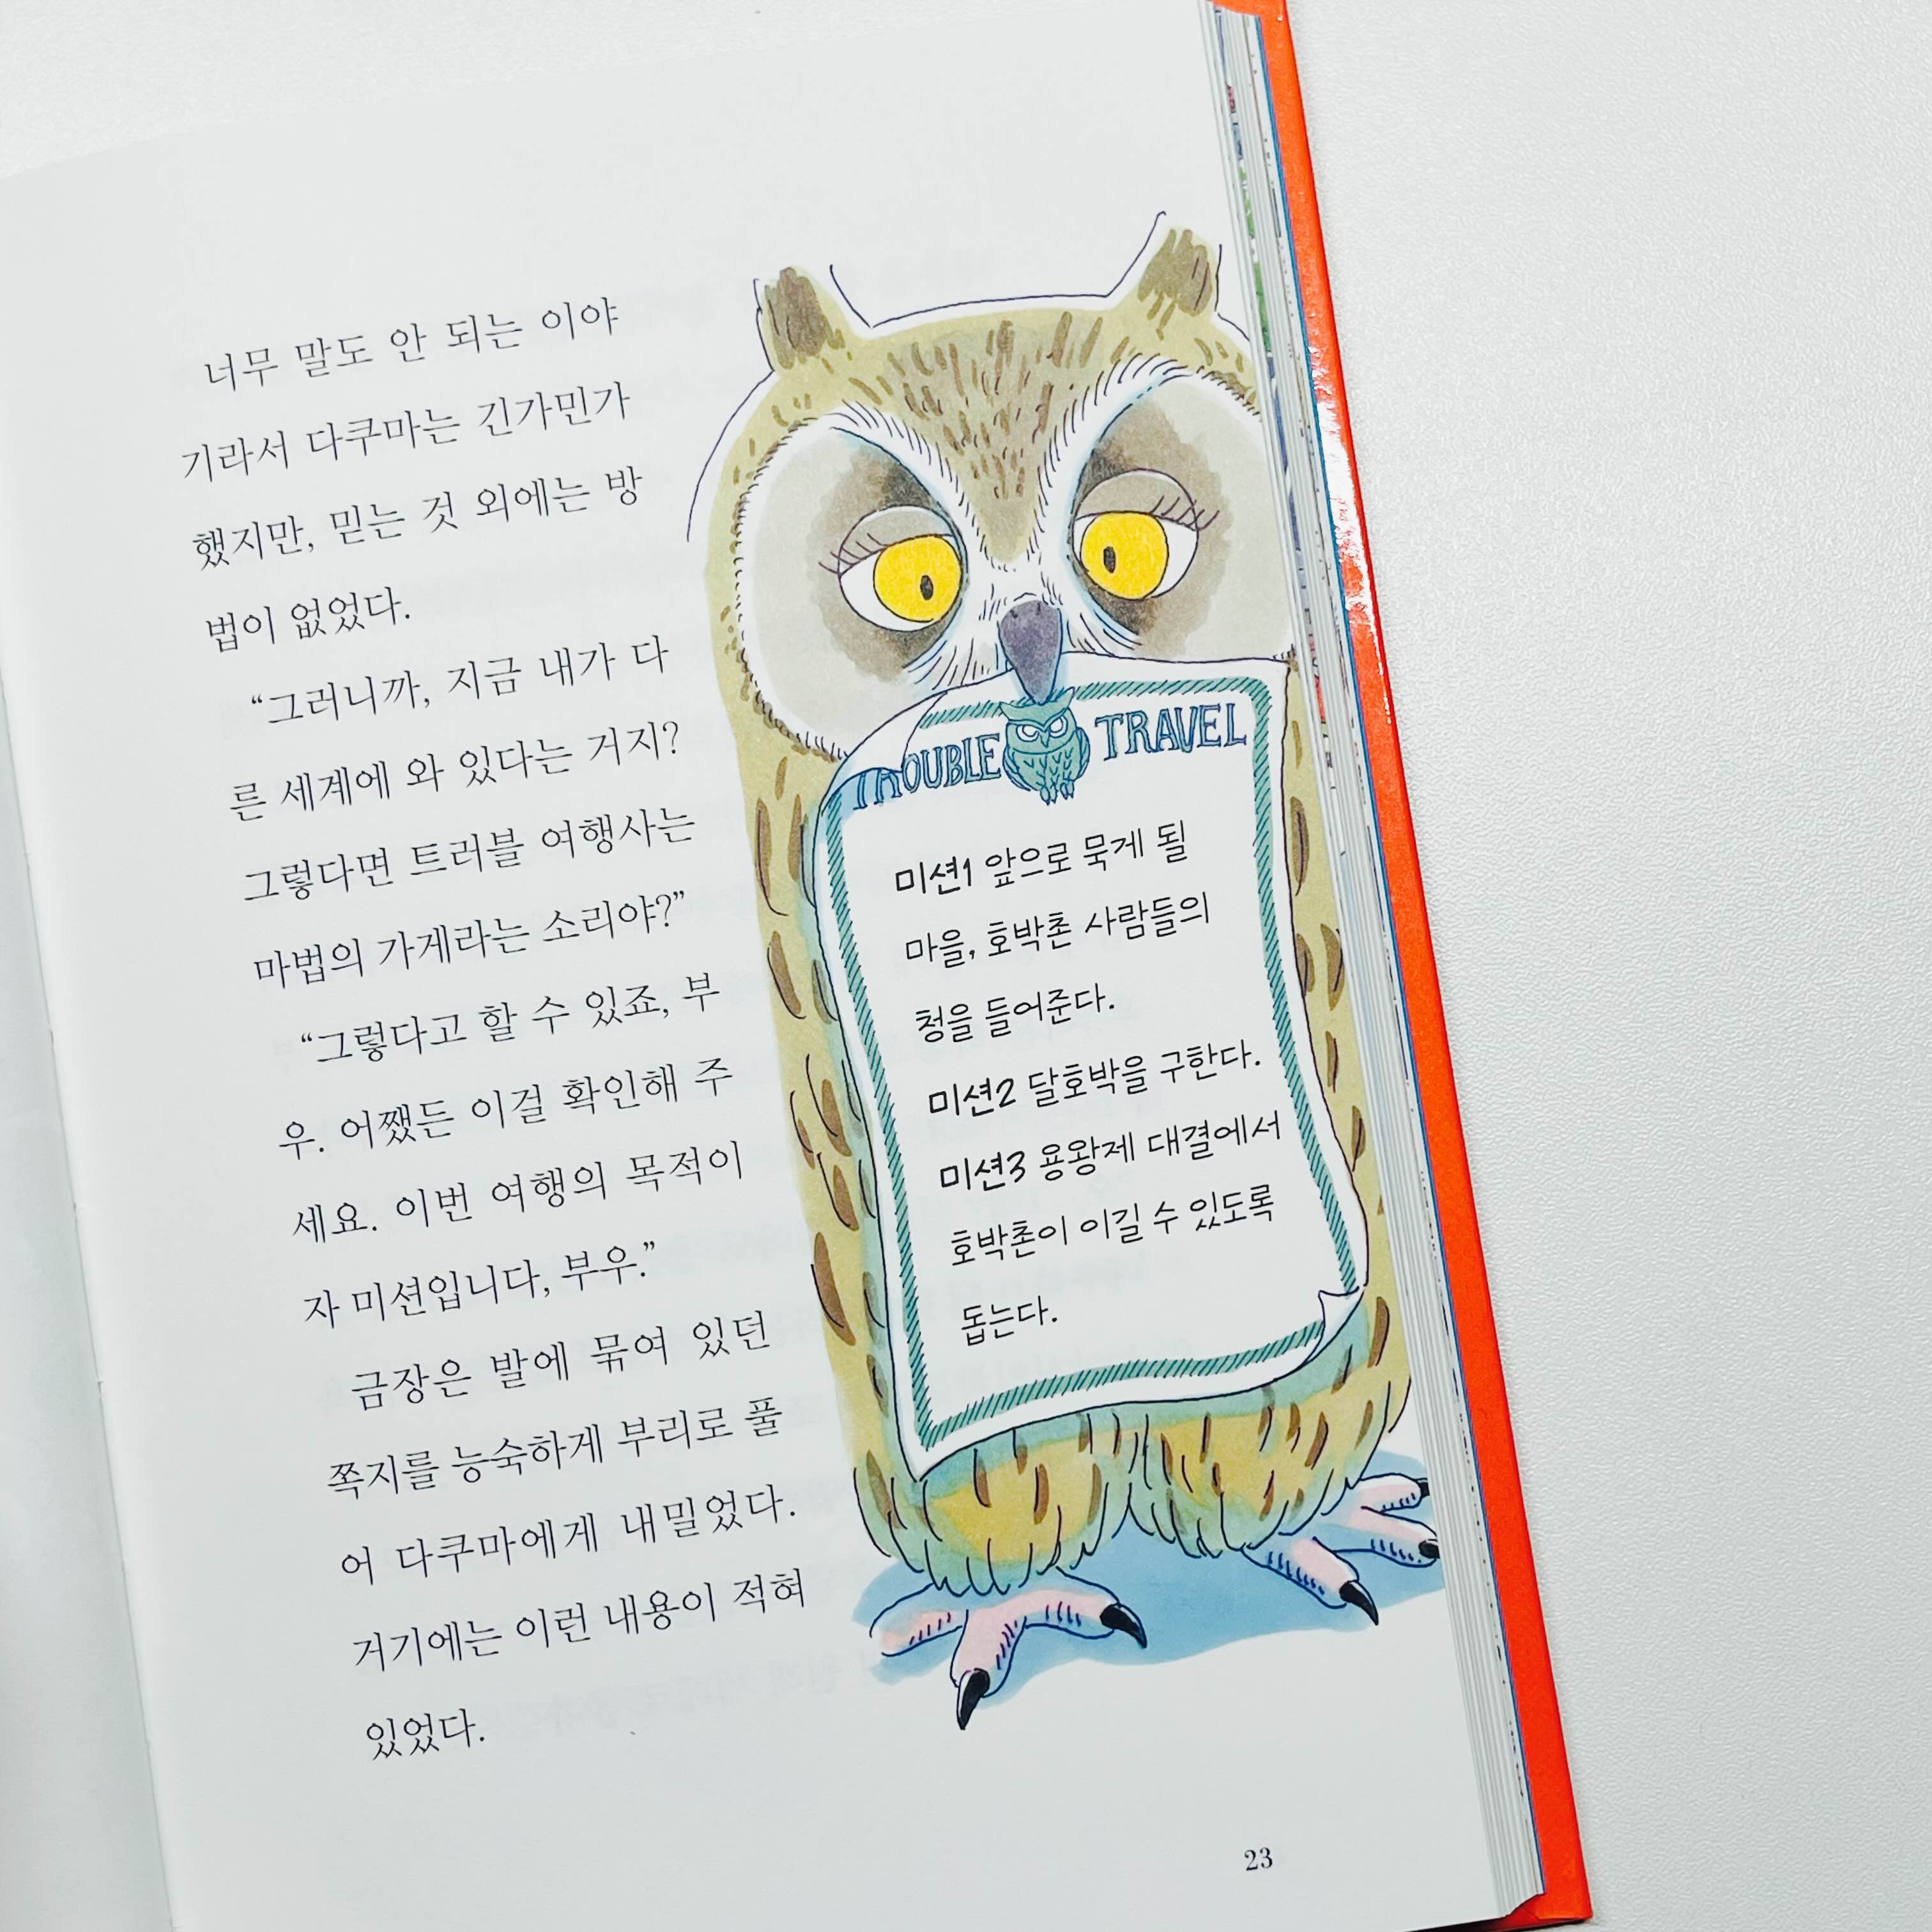 너무 말도 안 되는 이야
기라서 다쿠마는 긴가민가
했지만, 믿는 것 외에는 방
법이 없었다.
“그러니까, 지금 내가 다
른 세계에 와 있다는 거지?
그렇다면 트러블 여행사는
마법의 가게라는 소리야?”
“그렇다고 할 수 있죠, 부
우. 어쨌든 이걸 확인해 주
세요. 이번 여행의 목적이
자 미션입니다, 부우.”
금장은 발에 묶여 있던
쪽지를 능숙하게 부리로 풀
어 다쿠마에게 내밀었다.
거기에는 이런 내용이 적혀
있었다.
TROUBLE TRAVEL
미션1 앞으로 묵게 될
마을, 호박촌 사람들의
청을 들어준다.
미션2 달호박을 구한다.
미션3 용왕제 대결에서
호박촌이 이길 수 있도록
돕는다.
23